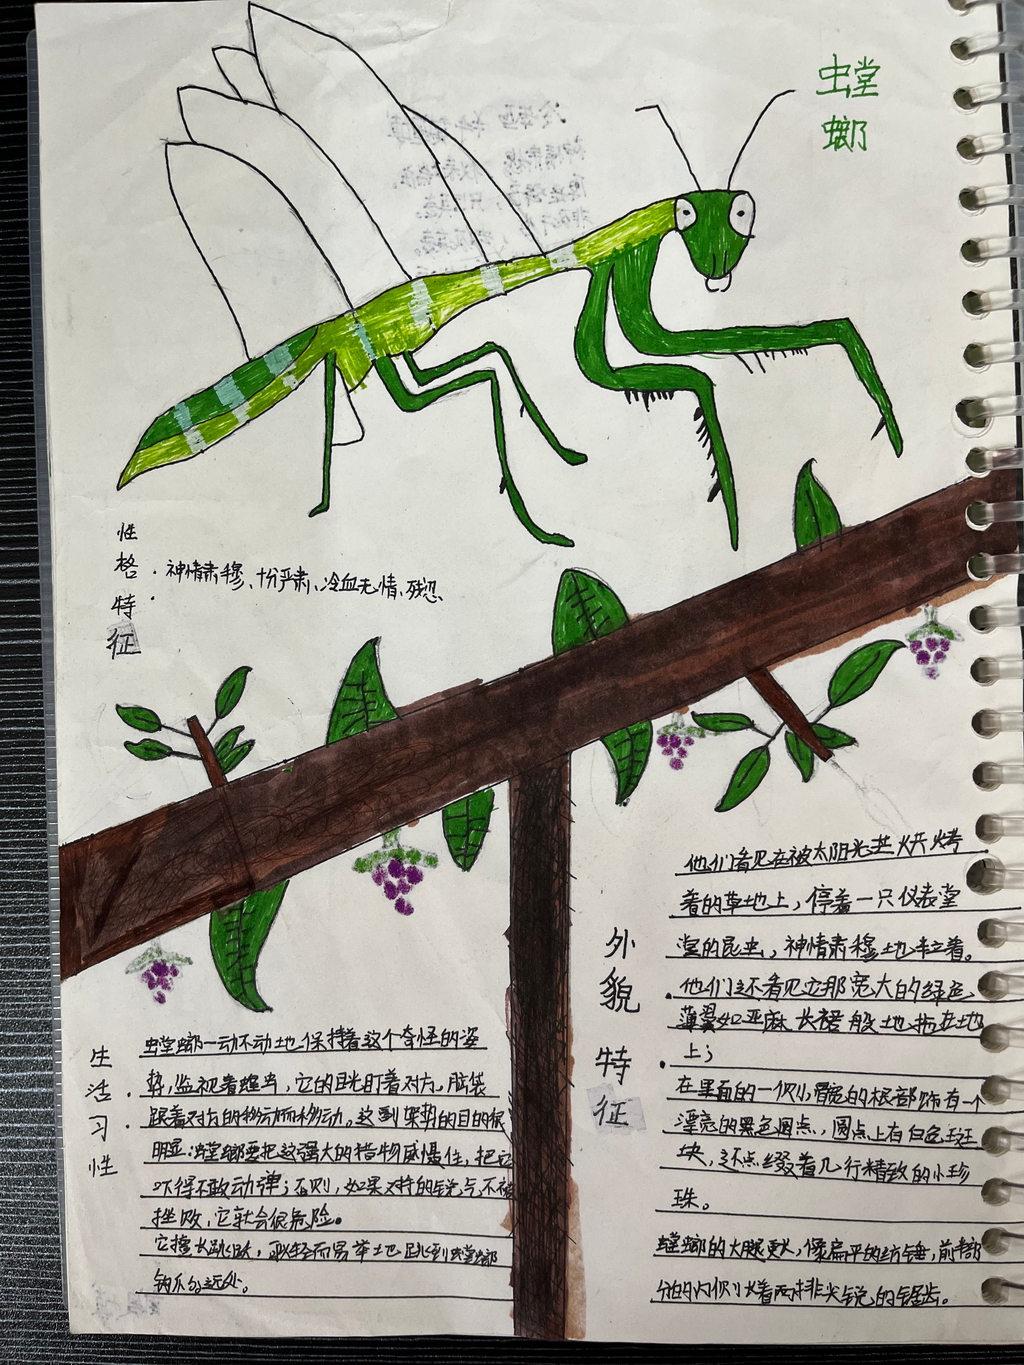 螳
螂
性格特征：神情肃穆、十分严肃、冷血无情、残忍
外貌特征：
他们看见在被太阳光
着的草地上，停着一只仪表堂
堂的昆虫，神情肃穆地半立着。
他们还看见它那宽大的绿色
薄翼如亚麻长裙般地拖在地
上；
在里面的一侧，臂的根部饰有一个
漂亮的黑色圆点，圆点上有白色斑
块，还点缀着几行精致的小珍
珠。
螳螂的大腿更长，像扁平的纺锤，前半部
分的内侧长着两排尖锐的锯齿。
生活习性：
螳螂一动不动地保持着这个奇怪的姿
势，监视着蝗虫，它的目光盯着对方，脑袋
跟着对方的移动而移动。这副架势的目的很
明显：螳螂要把这强大的猎物威慑住，把它
吓得不敢动弹；否则，如果对持的锐气不被
挫败，它就会很危险。
它擅长跳跃，轻而易举地跳到螳螂
钩爪的远处。